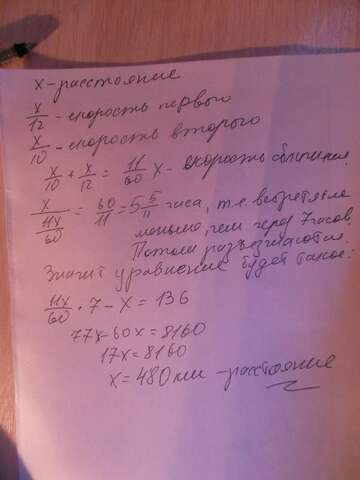 x - расстояние
x/12 - скорость первого
x/10 - скорость второго
x/10 + x/12 = 11/60 x - скорость сближения.
x / (11x/60) = 60/11 = 5 5/11 часа, т.е. встретятся
меньше, чем через 7 часов.
Потом разъезжаются.
Значит уравнение будет такое:
11x/60 · 7 - x = 136
77x - 60x = 8160
17x = 8160
x = 480 км - расстояние